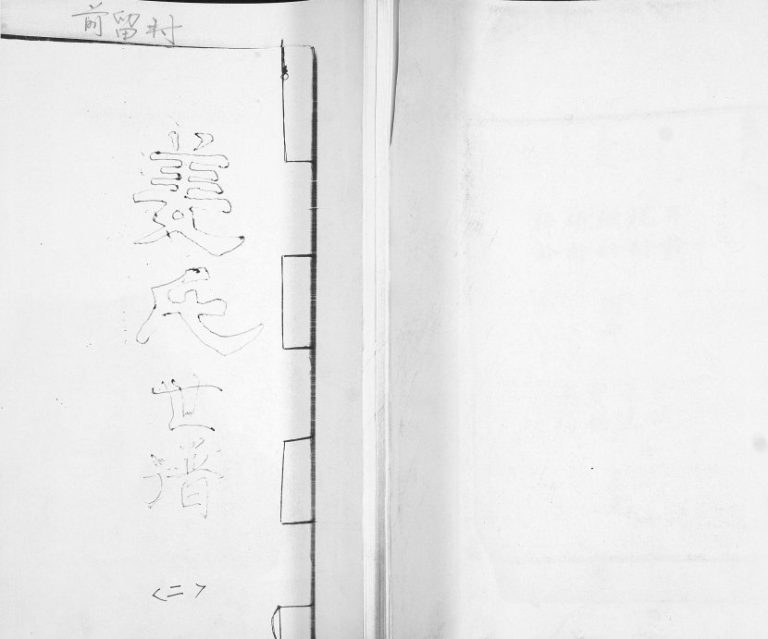 前留村
姜氏世谱
<二>